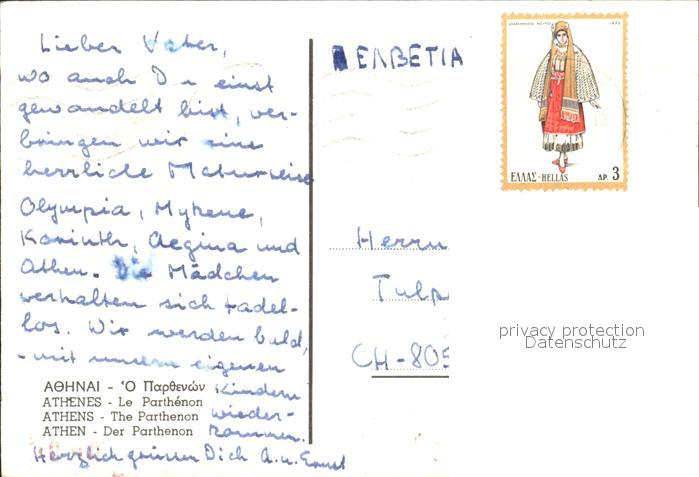 Lieber Vater,
wo auch Du einst
gewandelt bist, ver-
bringen wir eine
herrliche Maturreise
Olympia, Mykene,
Korinth, Aegina und
Athen. Die Mädchen
verhalten sich tadel-
los. Wir werden bald,
- mit unsern eigenen
Kindern
wieder-
kommen.
Herzlich grüssen Dich A. u. Ernst
ΑΘΗΝΑΙ - Ὁ Παρθενών
ATHENES - Le Parthénon
ATHENS - The Parthenon
ATHEN - Der Parthenon
ΕΛΒΕΤΙΑ
1973
ΕΛΛΑΣ-HELLAS ΔΡ. 3
Herrn
Tulp
CH-805
privacy protection
Datenschutz